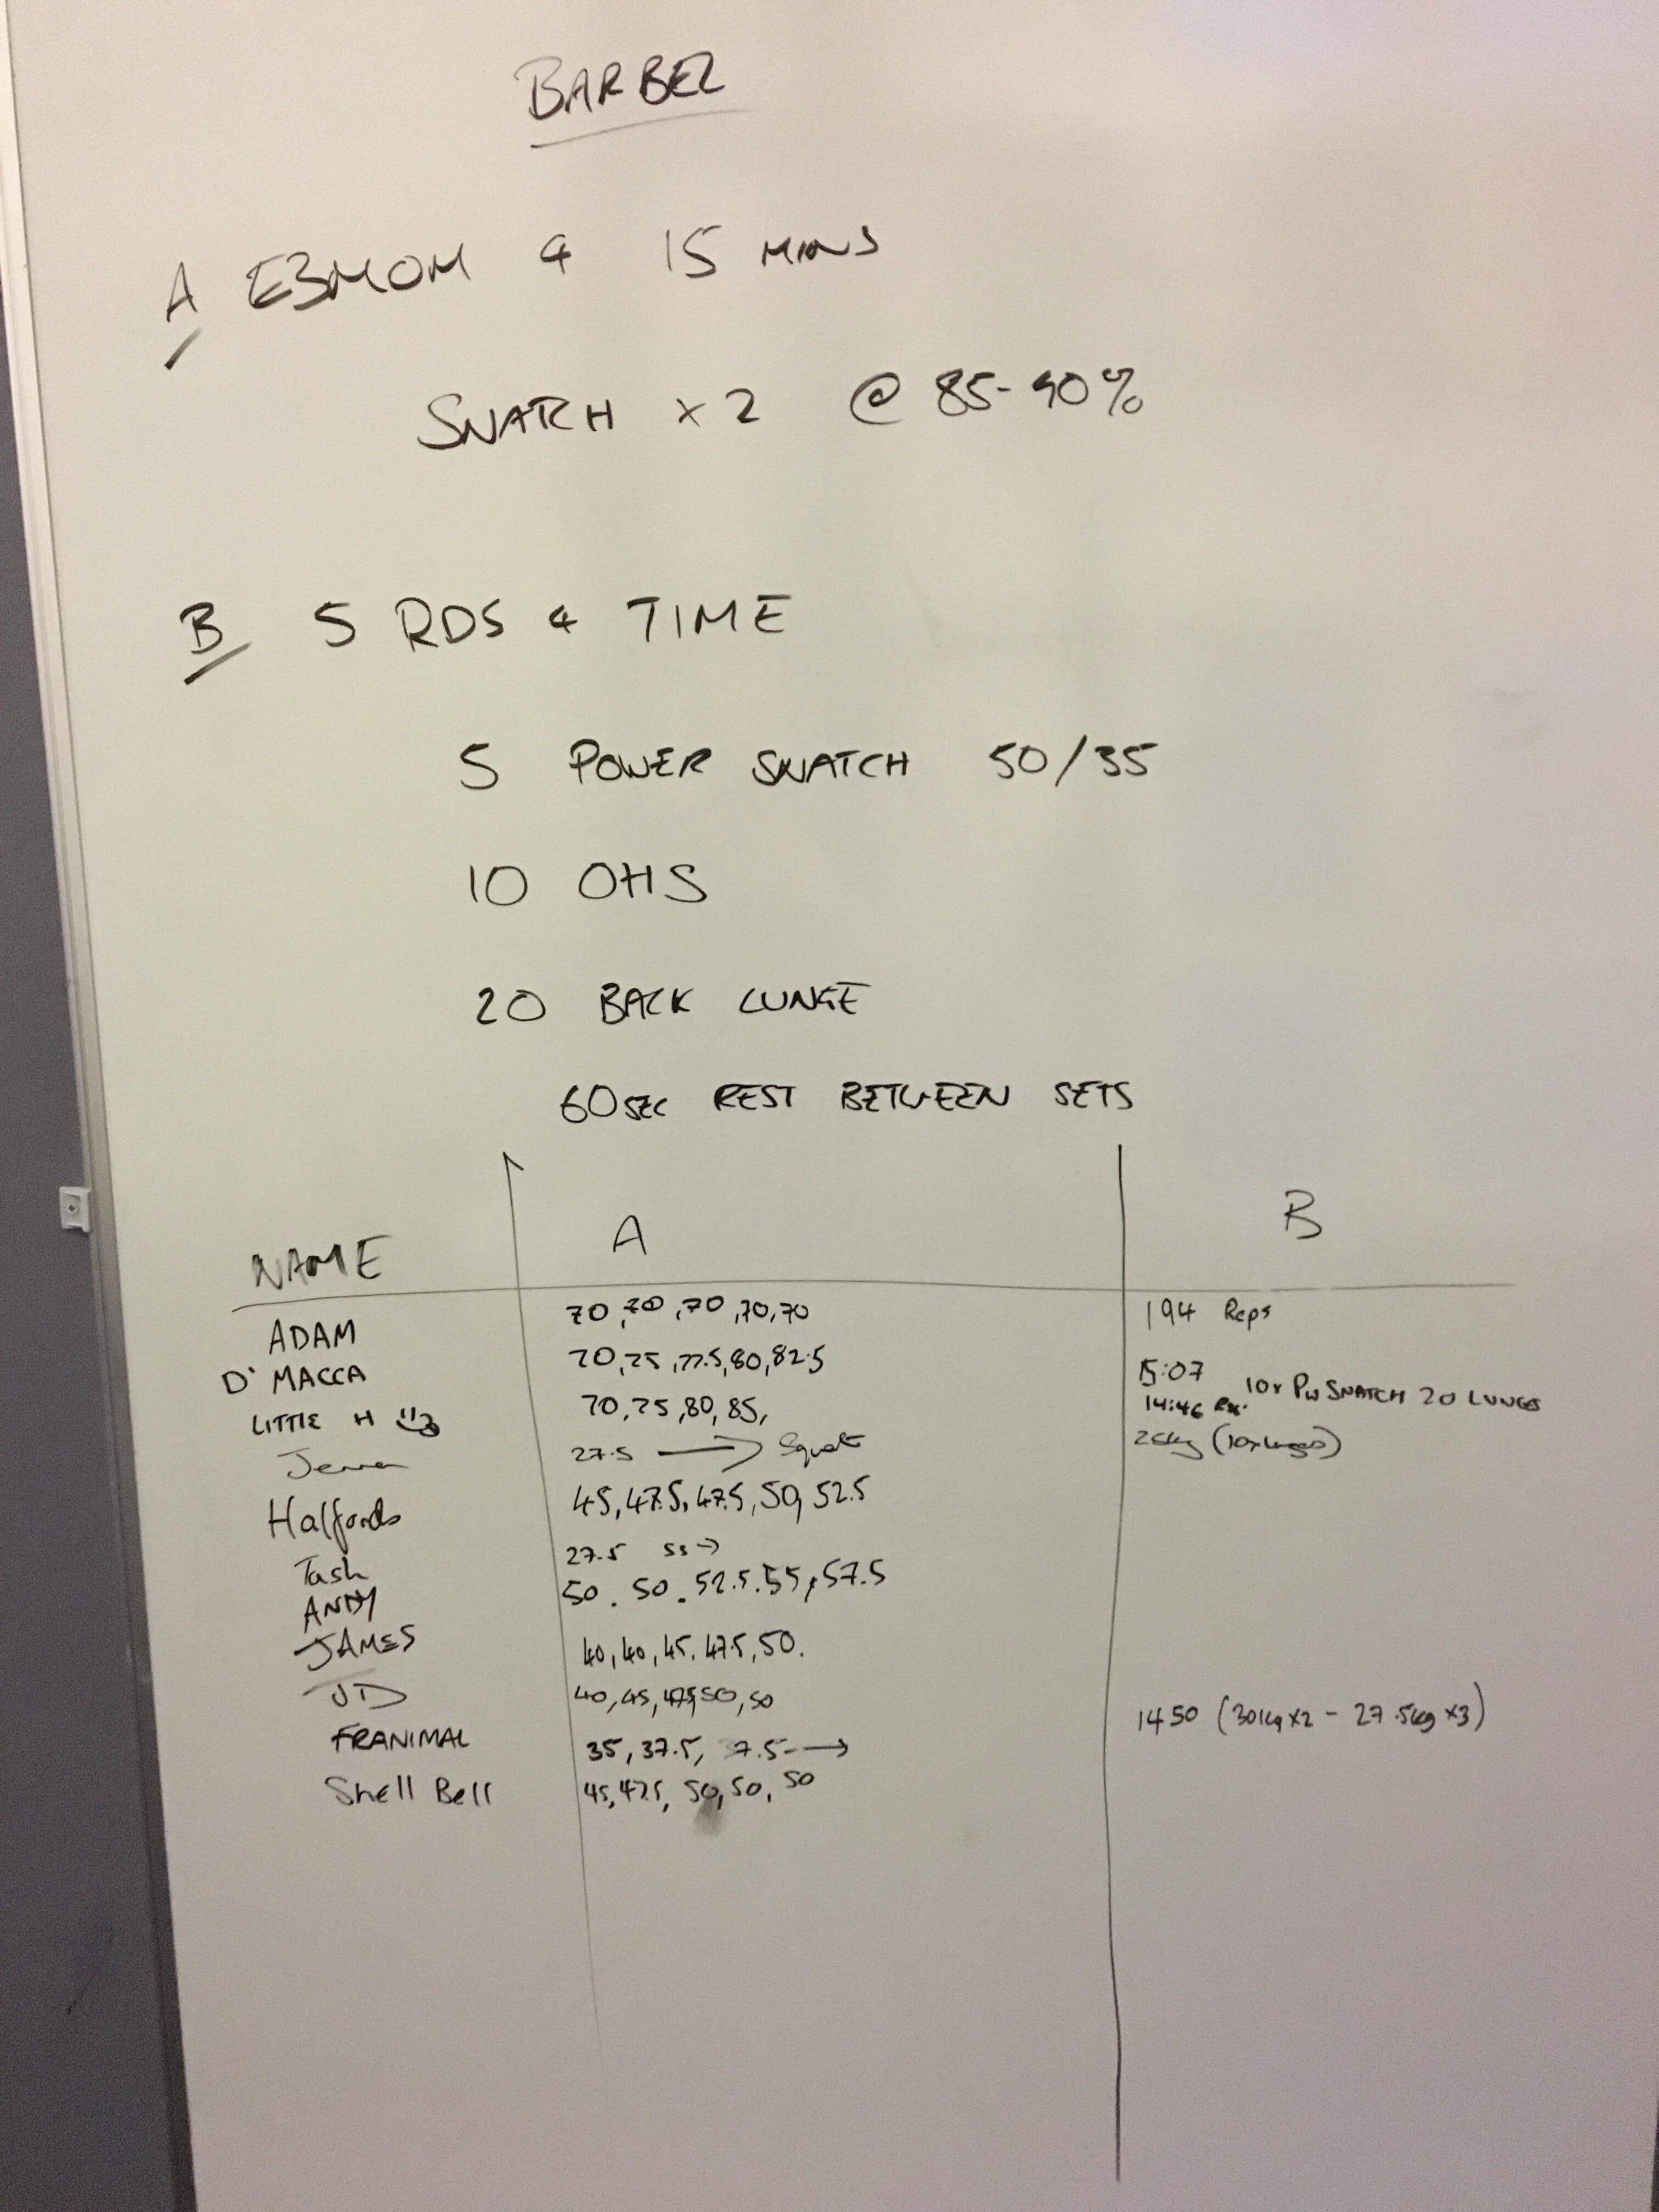 BARBEL
A E3MOM 4 15 MINS
SNATCH x 2 @ 85-90%
B 5 RDS 4 TIME
5 POWER SNATCH 50/35
10 OHS
20 BACK LUNGE
60 SEC REST BETWEEN SETS
NAME A B
ADAM 70, 70, 70, 70, 70 194 Reps
D' MACCA 70, 75, 77.5, 80, 82.5 15:07
LITTLE H 70, 75, 80, 85, 14:46 Rx. 10x PW SNATCH 20 LUNGES
27.5 → Squat
Halfords 45, 47.5, 47.5, 50, 52.5
Tash 27.5 ss →
ANDY 50. 50. 52.5. 55, 57.5
JAMES 40, 40, 45. 47.5, 50.
JD 40, 45, 47.5, 50, 50
FRANIMAL 35, 37.5, 37.5 → 1450 (30kg x2 - 27.5kg x3)
Shell Bell 45, 47.5, 50, 50, 50